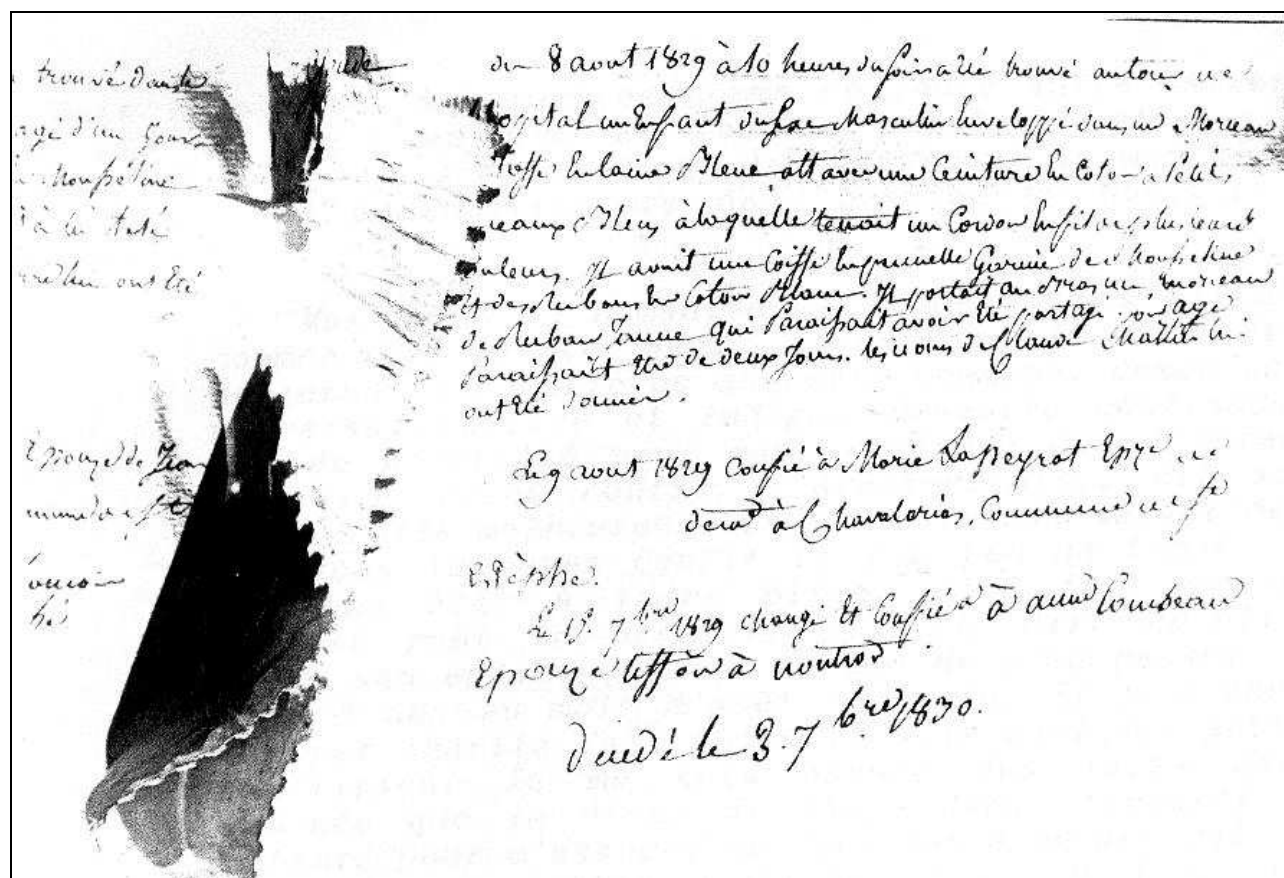 trouvé dans le
agé d'un jour
Mousseline
à la tête
ont été
Epouze de Jean
du 8 aout 1829 à 10 heures du soir a été trouvé au tour
hopital un Enfant du sexe Masculin Enveloppé dans un Morceau
toffe En laine Bleue, att avec une Ceinture En Coton a petits
reaux Bleus à laquelle tenait un Cordon En fil de plusieurs
ouleurs. Il avait une Coiffe En prunelle Garnie de Mousseline
et des Rubans En Coton Blanc. Il portait au bras un morceau
de Ruban Jaune qui Paraissait avoir été partagé. Son age
Paraissait Etre de deux Jours. les noms de Claude Mathieu lui
ont été donnés.
Le 9 aout 1829 Confié à Marie Lapeyrot Epze
demt à Chavalarias, Commune
Estèphe.
Le 15 7bre 1829 changé Et Confié à anne Combeau
Epouze tiffon à nontron
décédé le 3. 7bre 1830.